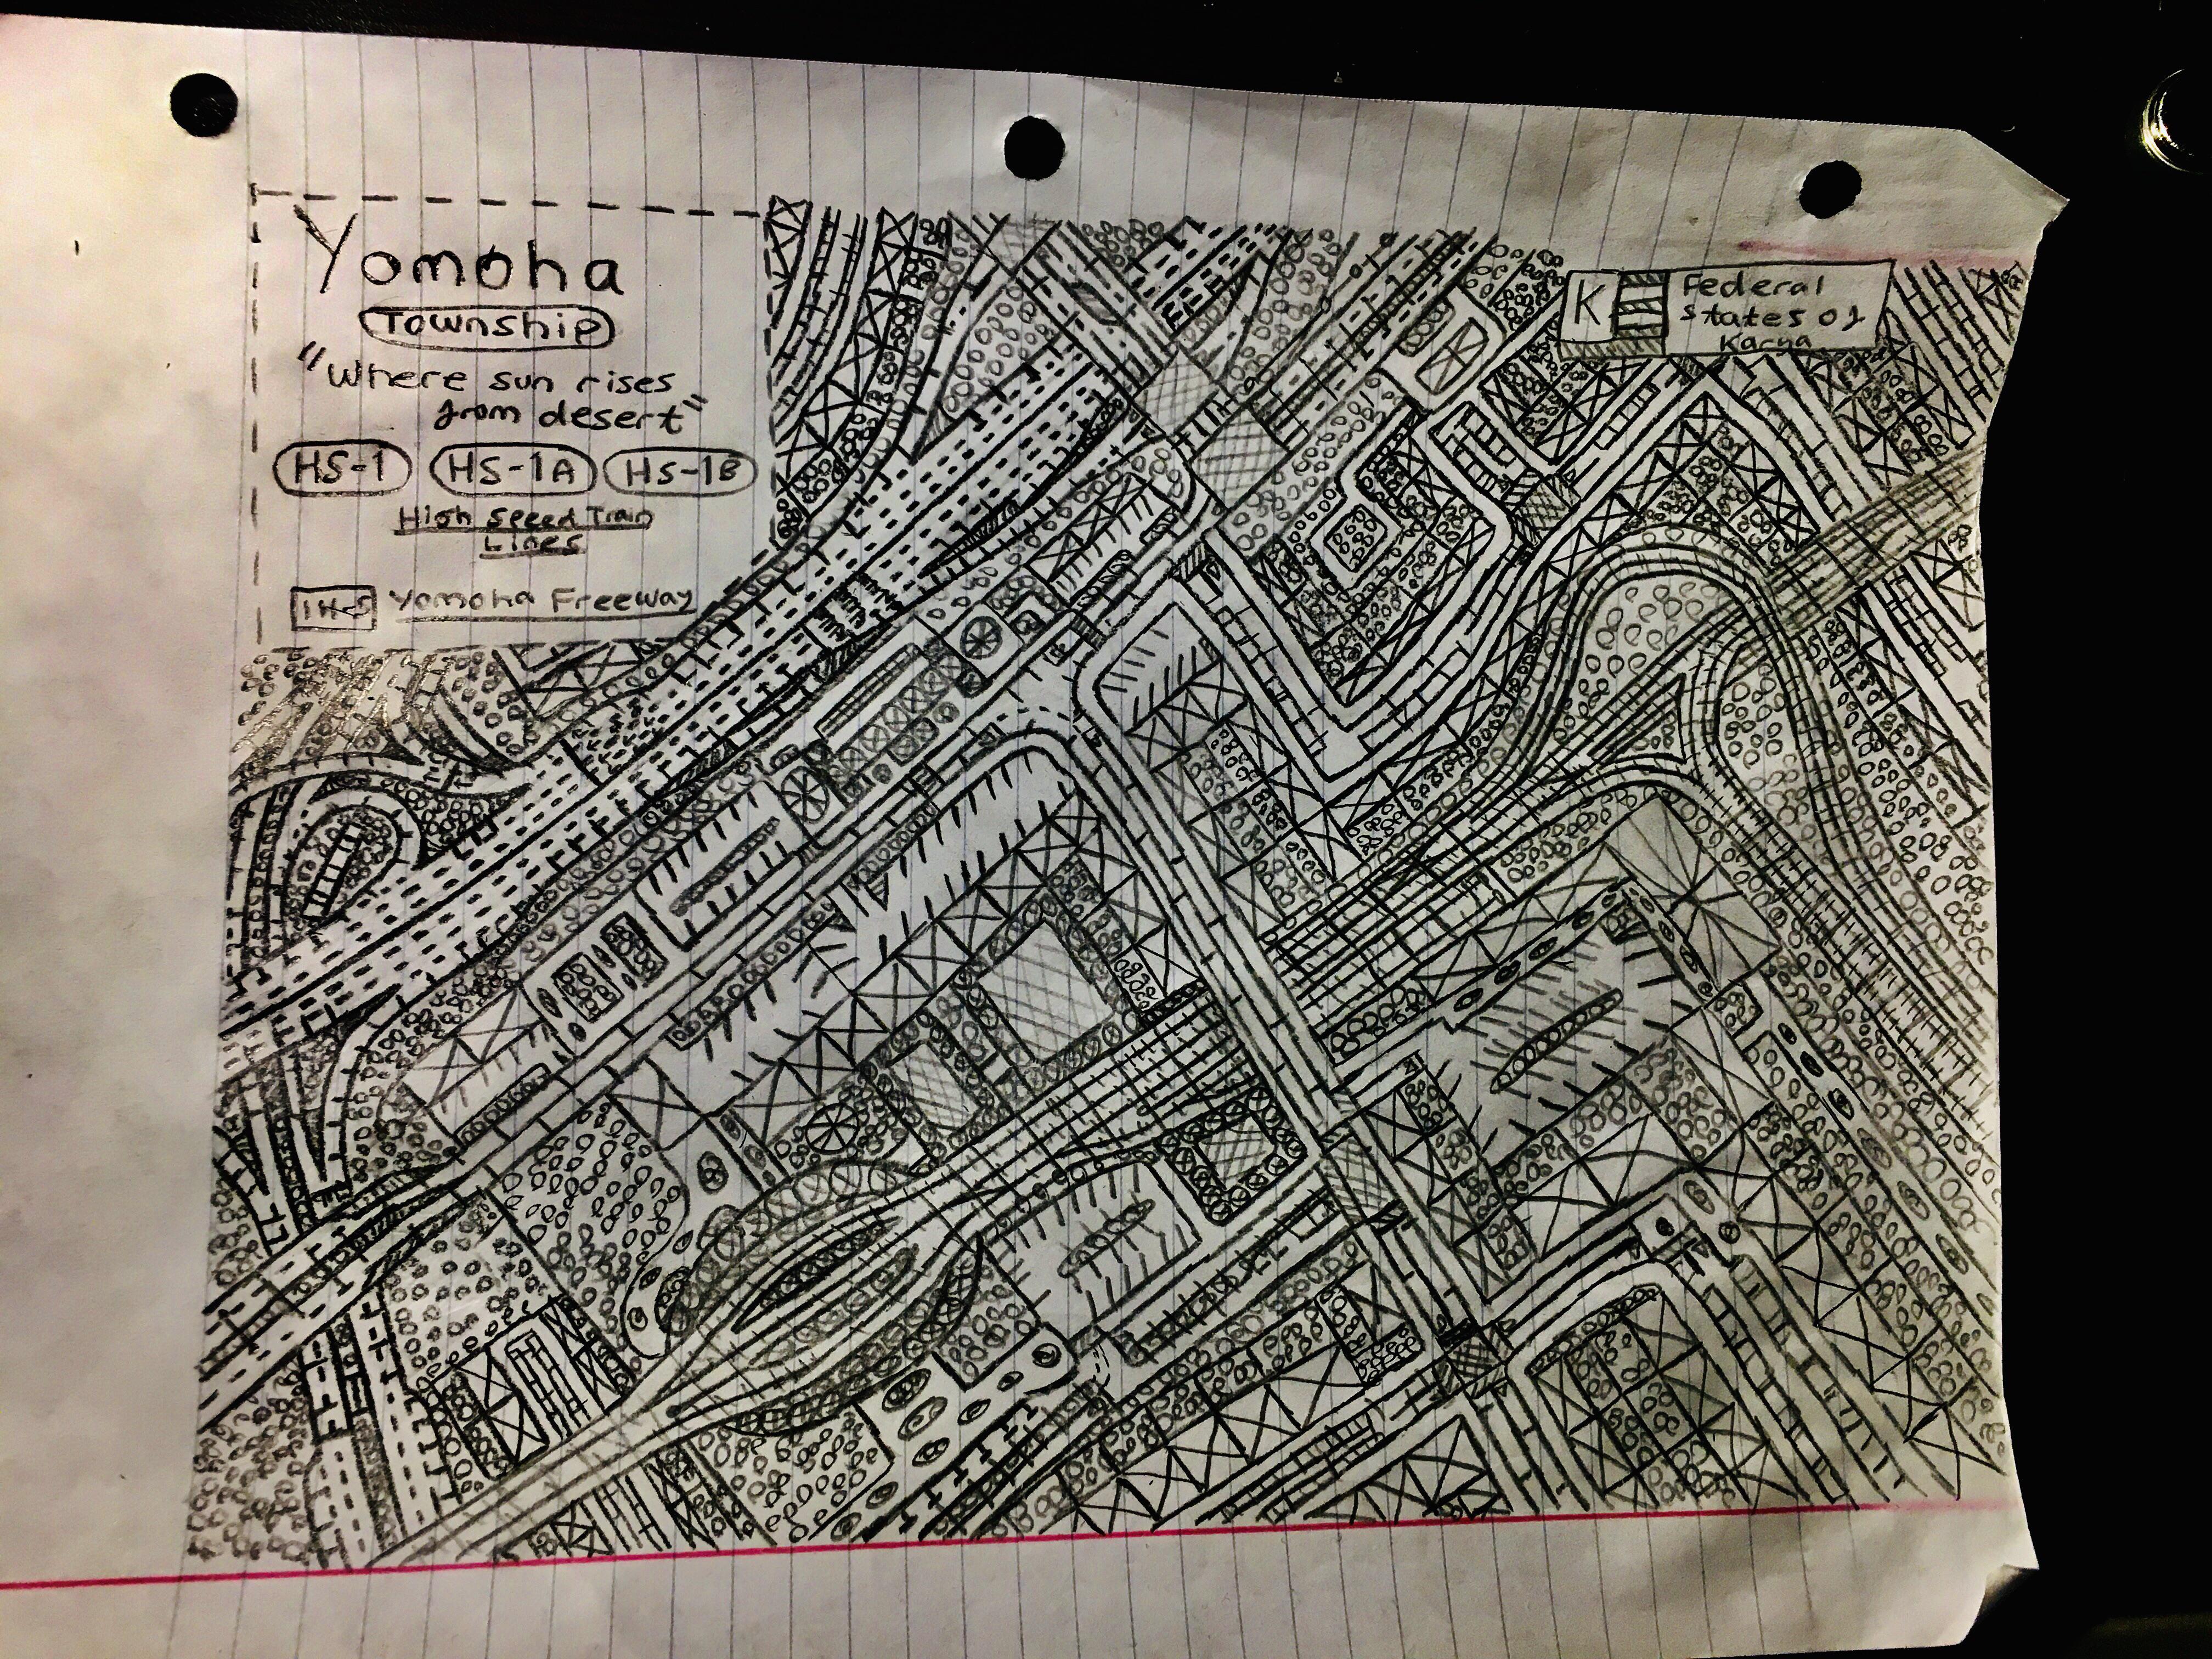 Yomoha
Township
"Where sun rises
from desert"
HS-1 HS-1A HS-1B
High Speed Train
Lines
Yomoha Freeway
K Federal
States of
Karya